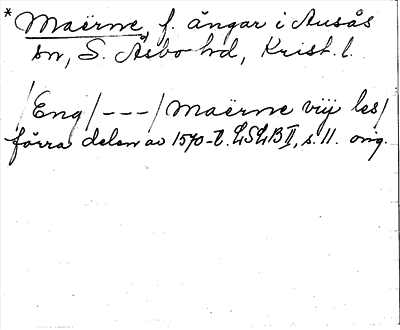 * Maërne, f. ängar i Ausås
sn, S. Åsbo hd, Krist. l.
/Eng/---/Maërne vÿ les/
förra delen av 1570-t. LSLB II, s. 11. orig.